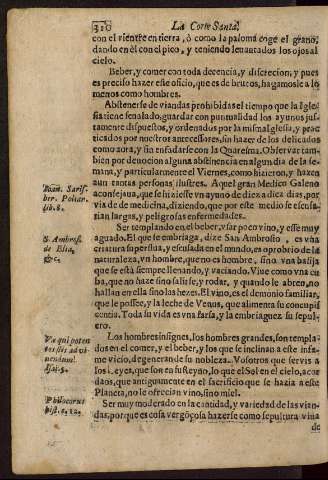 310
La Corte Santa,
con el vientre en tierra, ò como la paloma coge el grano,
dando en èl con el pico, y teniendo leuantados los ojos al
cielo.
Beber, y comer con toda decencia, y discrecion, y pues
es preciso hazer este oficio, que es de brutos, hagamosle a lo
menos como hombres.
Abstenerse de viandas prohibidas el tiempo que la Igle-
sia tiene señalado, guardar con puntualidad los ayunos jus-
tamente dispuestos, y ordenados por la misma Iglesia, y prac-
ticados por nuestros antecessores, sin hazer de los delicados
como aora, y sin enfadarse con la Quaresma. Observar tam-
bien por deuocion alguna abstinencia en algun dia de la se-
mana, y particularmente el Viernes, como hizieron, y hazen
aun tantas personas ilustres. Aquel gran Medico Galeno
aconsejaua, que se hiziesse vn ayuno de diez a diez dias, por
via de de medicina, diziendo, que por este medio se escusa-
rian largas, y peligrosas enfermedades.
Ioan. Sarisf-
ber. Policr.
lib. 8.
Ser templando en el beber, vsar poco vino, y esse muy
aguado. El que se embriaga, dize San Ambrosio, es vna
criatura superflua, y escusada en el mundo, es oprobrio de la
naturaleza, vn hombre, que no es hombre, sino vna basija
que se està siempre llenando, y vaciando. Viue como vna cu-
ba, que no haze sino salirse, y rodar, y quando le abren, no
hallan en ella sino las hezes. El vino, es el demonio familiar,
que le possee, y la leche de Venus, que alimenta su concupis
centia. Toda su vida es vna farsa, y la embriaguez su sepul-
cro.
S. Ambros.
de Elia,
&c.
Los hombres insignes, los hombres grandes, son templa-
dos en el comer, y el beber, y los que se inclinan a este infa-
me vicio, degenerande su nobleza. Vosotros que servis a
los Reyes, que son en su Reyno, lo que el Sol en el cielo, acor
daos, que antiguamente en el sacrificio que se hazia a este
Planeta, no le ofrecian vino, sino miel.
Væ qui poten
tes estis ad vi-
nendum!
Isai. 5.
Philocorus
hist. l. 12.
Ser muy moderado en la cantidad, y variedad de las vian-
das, porque es cosa vergõçosa hazerse como sepultura viua
de